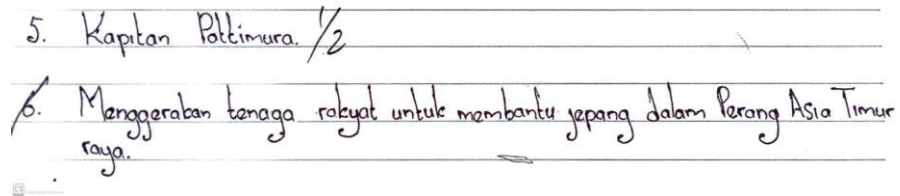 5. Kapitan Pattimura. 1/2
6. Menggerakan tenaga rakyat untuk membantu jepang dalam Perang Asia Timur
raya.
CS